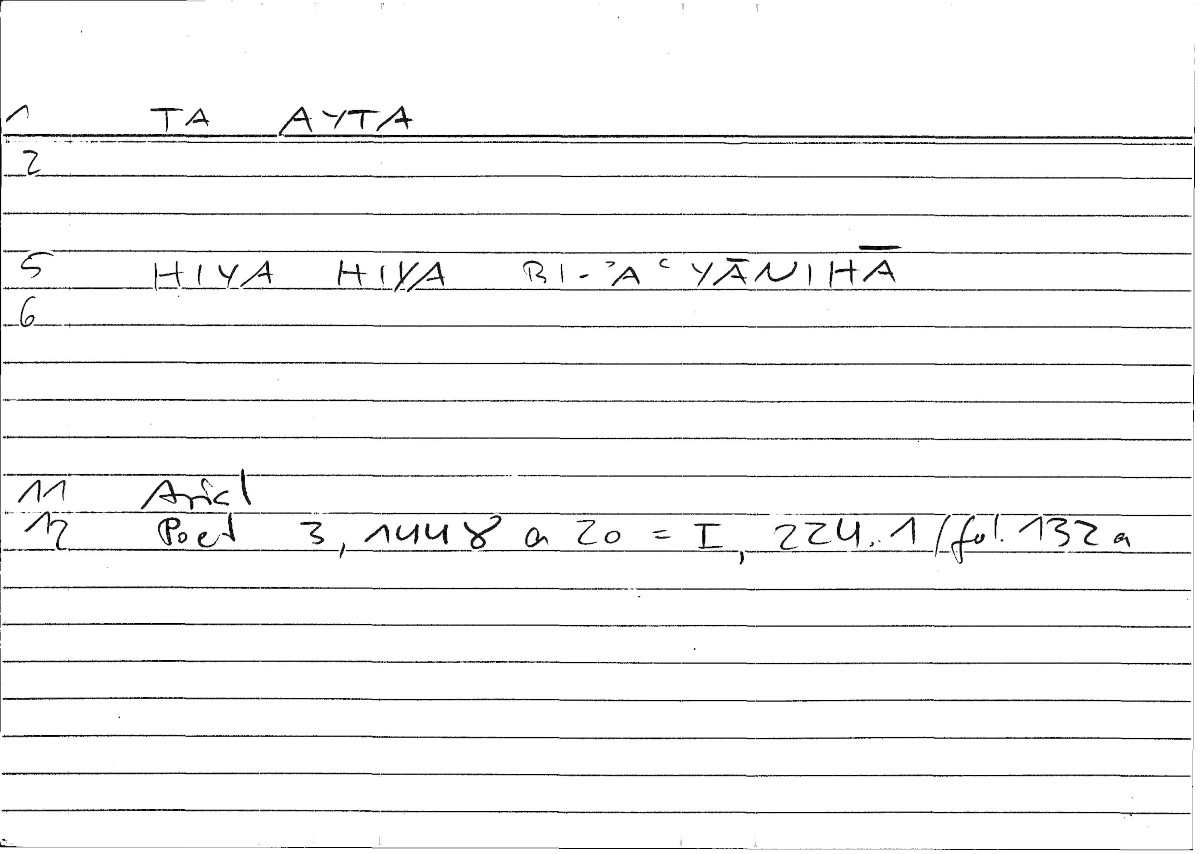 1 TA AYTA
2
5 HIYA HIYA BI-ʾAʿYĀNIHĀ
6
11 Arist
12 Poet 3, 1448 a 20 = I, 224.1/fol. 132a